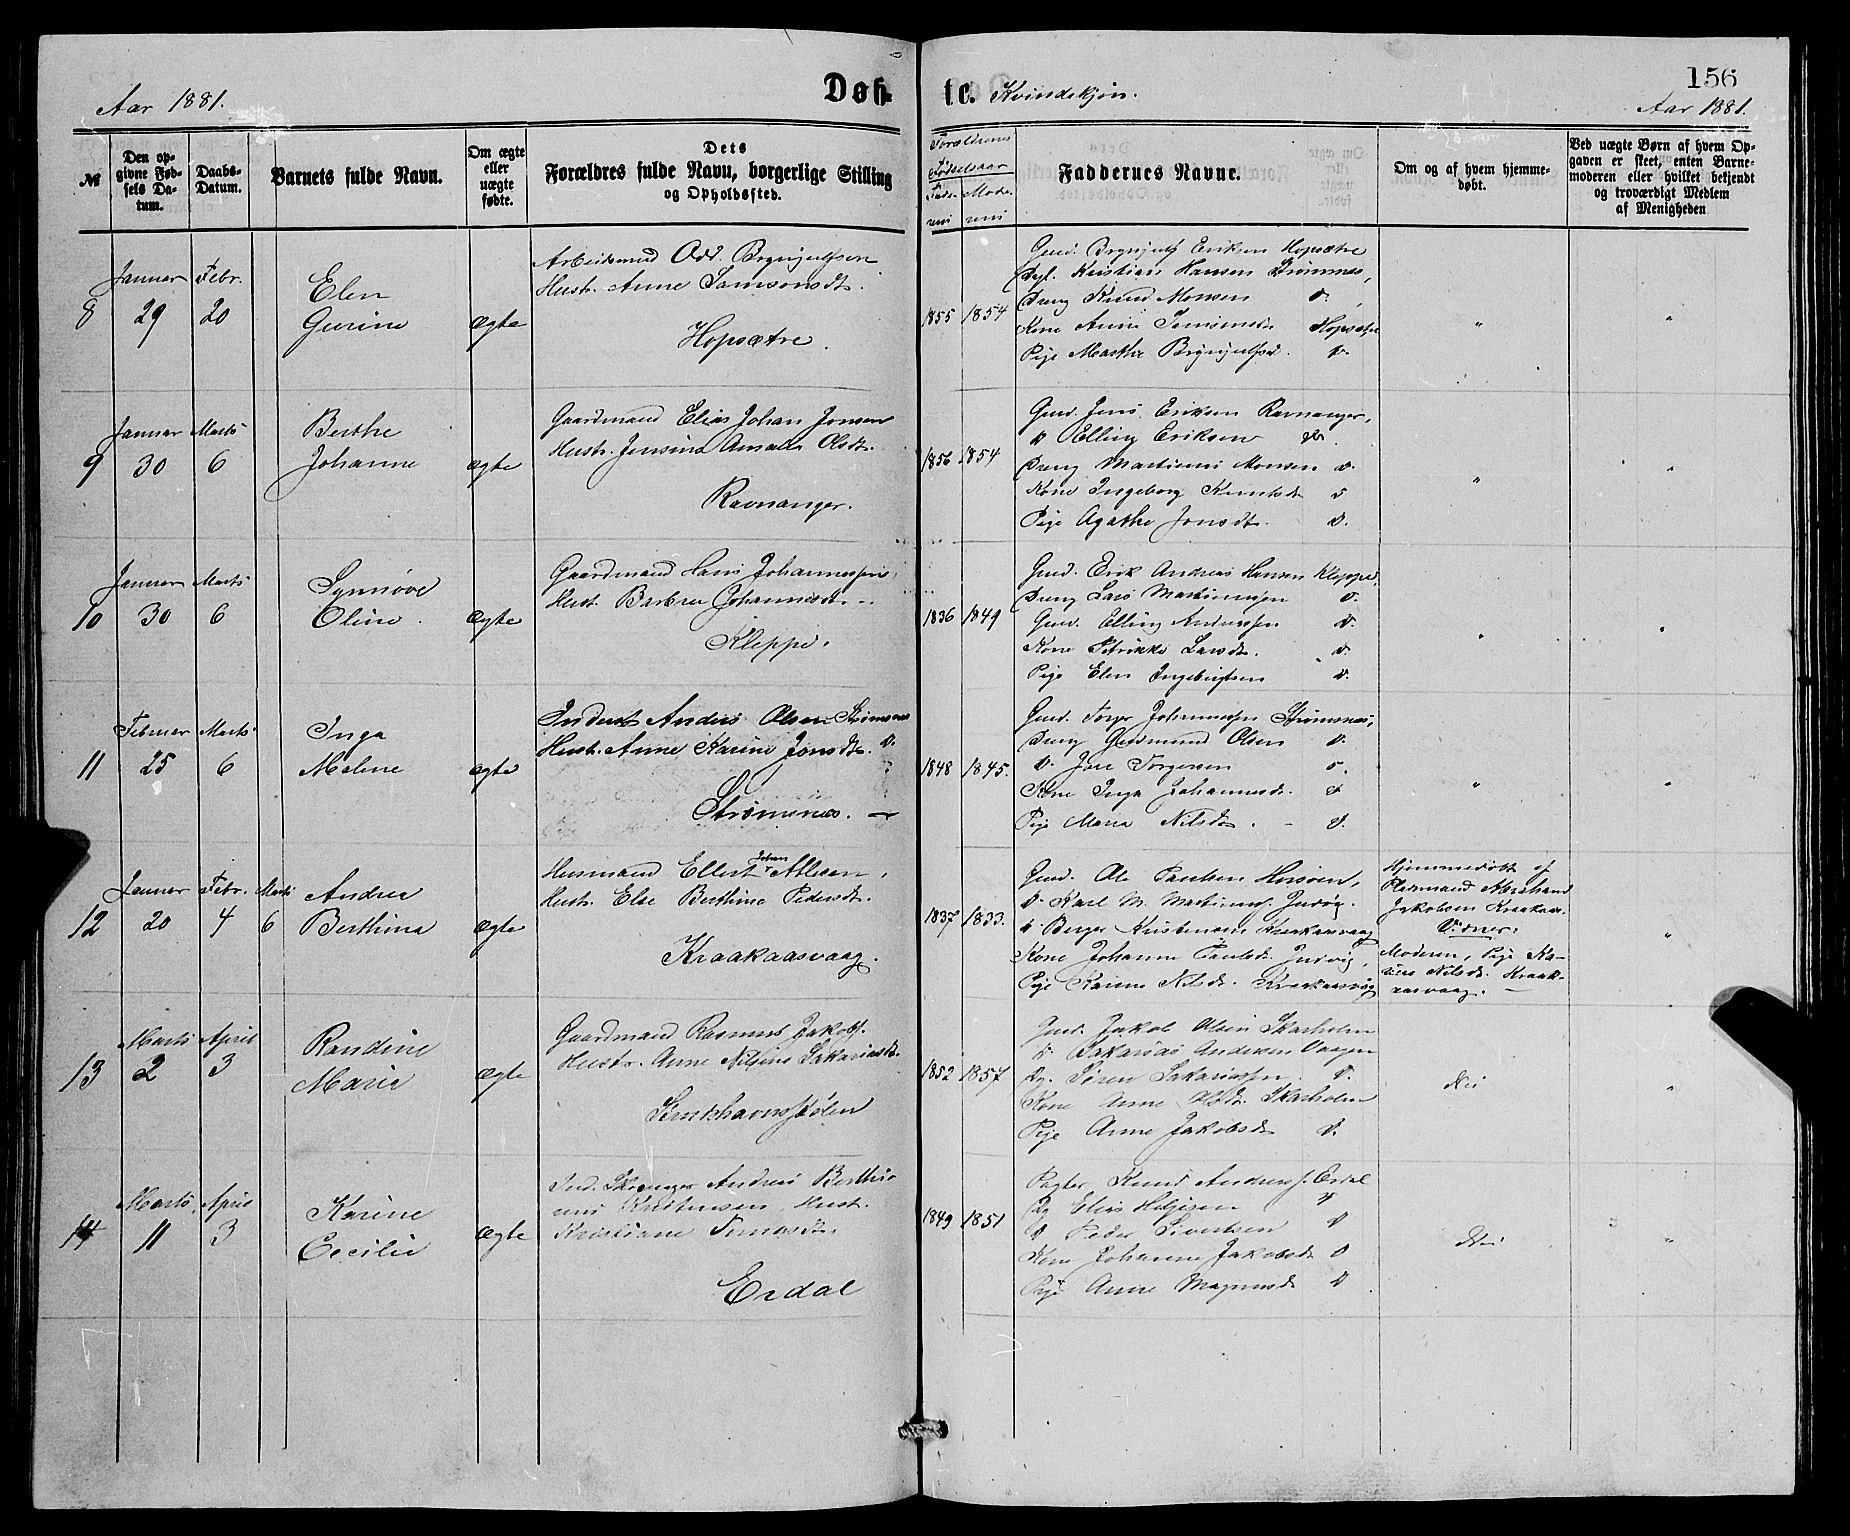 Aar 1881.
Døb-
te.
Kvindekjøn.
156
Aar 1881.
№
Den op-
givne Fød-
sels Da-
tum.
Daabs-
Datum.
Barnets fulde Navn.
Om ægte
eller
uægte
fødte.
Dets
Forældres fulde Navn, borgerlige Stilling
og Opholdssted.
Forældrenes
Fødselsaar
Fade-
rens
Mode-
rens
Faddernes Navne.
Om og af hvem hjemme-
døbt.
Ved uægte Børn af hvem Op-
gaven er skeet, enten Barne-
moderen eller hvilket bekjendt
og troværdigt Medlem
af Menigheden
8
Januar
29
Febr.
20
Elen
Gurine
ægte
Arbeidsmd Odd Brynjulfsen
Hustr. Anne Samsonsdt.
Hopsætre.
1855
1854
Gmd. Brynjulf Eriksen Hopsætre
Kristian Hansen Strømsnes,
Dreng Knud Monsen D.
Kone Anna Hopsætre
Pige Marthe Brynjulfsd. D.
"
"
9
Januar
30
Marts
6
Berthe
Johanne
ægte
Gaardmand Elias Johan Jonsen
Hustr. Jensina Amalia Olsdt.
Ravnanger.
1856
1854
Gmd. Jens Eriksen Ravnanger,
D Elling Eriksen D.
Dreng Martinus Monsen D.
Kone Ingeborg Knutsdt D
Pige Agathe Jonsdt. D.
"
"
10
Januar
30
Marts
6
Synnøve
Oline.
ægte
Gaardmand Hans Johannessen
Hust. Barbra Johannesdt.
Kleppe.
1836
1849
Gmd. Erik Andreas Hansen Kleppe,
Dreng Lars Martinussen D.
Gmd. Elling Anderssen D.
Kone Petrikke Larsdt. D.
Pige Elen Ingebrigtsen D.
"
"
11
Februar
25
Marts
6
Inga
Malene
ægte
Inderst Anders Olsen Strømsnes
Hustr. Anne Karine Jonsdt. D.
Strømsnes.
1848
1845.
Gmd. Torger Johannessen Strømsnes,
Dreng Gudmund Olsen D.
D. Jon Torgersen D.
Kone Inga Johannesdt. D
Pige Maria Nilsdt. D.
"
"
12
Januar
20
Febr.
4
Marts
6
Andrea
Berthina
ægte
Johan
Husmand Ellert Atlesen,
Hustr. Else Berthine Pedersdt.
Kraakaasvaag.
1837
1833.
Gmd. Ole Paulsen
D Karl M. Martinus.
D Berger Kristensen Kraakaasvaag
Kone Johanne Paulsdt.
Pige Karine Nilsdt. Kraakaasvaag
Hjemmedøbt af
Pladsmand Abraham
Jakobsen Kraakaas.
Vidner:
Moderen, Pige Ka-
rine Nilsdt. Kraak-
aasvaag.
"
13
Marts
2
April
3
Randine
Marie
ægte
Gaardmand Rasmus Jakobs.
Hustr. Anne Nilsine Sakariasdt.
1852
1857
Gmd. Jakob Olsen Skarholm
D Sakarias Andersen Vaagen
Dg. Søren Sakariassen D.
Kone Anne Olsdt. Skarholm
Pige Anne Jakobsdt D.
Nei
"
14
Marts
11
April
3
Karine
Cecilie
ægte
Ind. Andreas Berthi-
nus Kristensen Hust.
Kristiane
Erdal
1849
1851
Pagter Knud Anders s. Erdal
Dg Elias Helgesen D
D Peder Sivertsen D
Kone Johanne Jakobsdt D
Pige Anne Magnusdt D
Nei
"